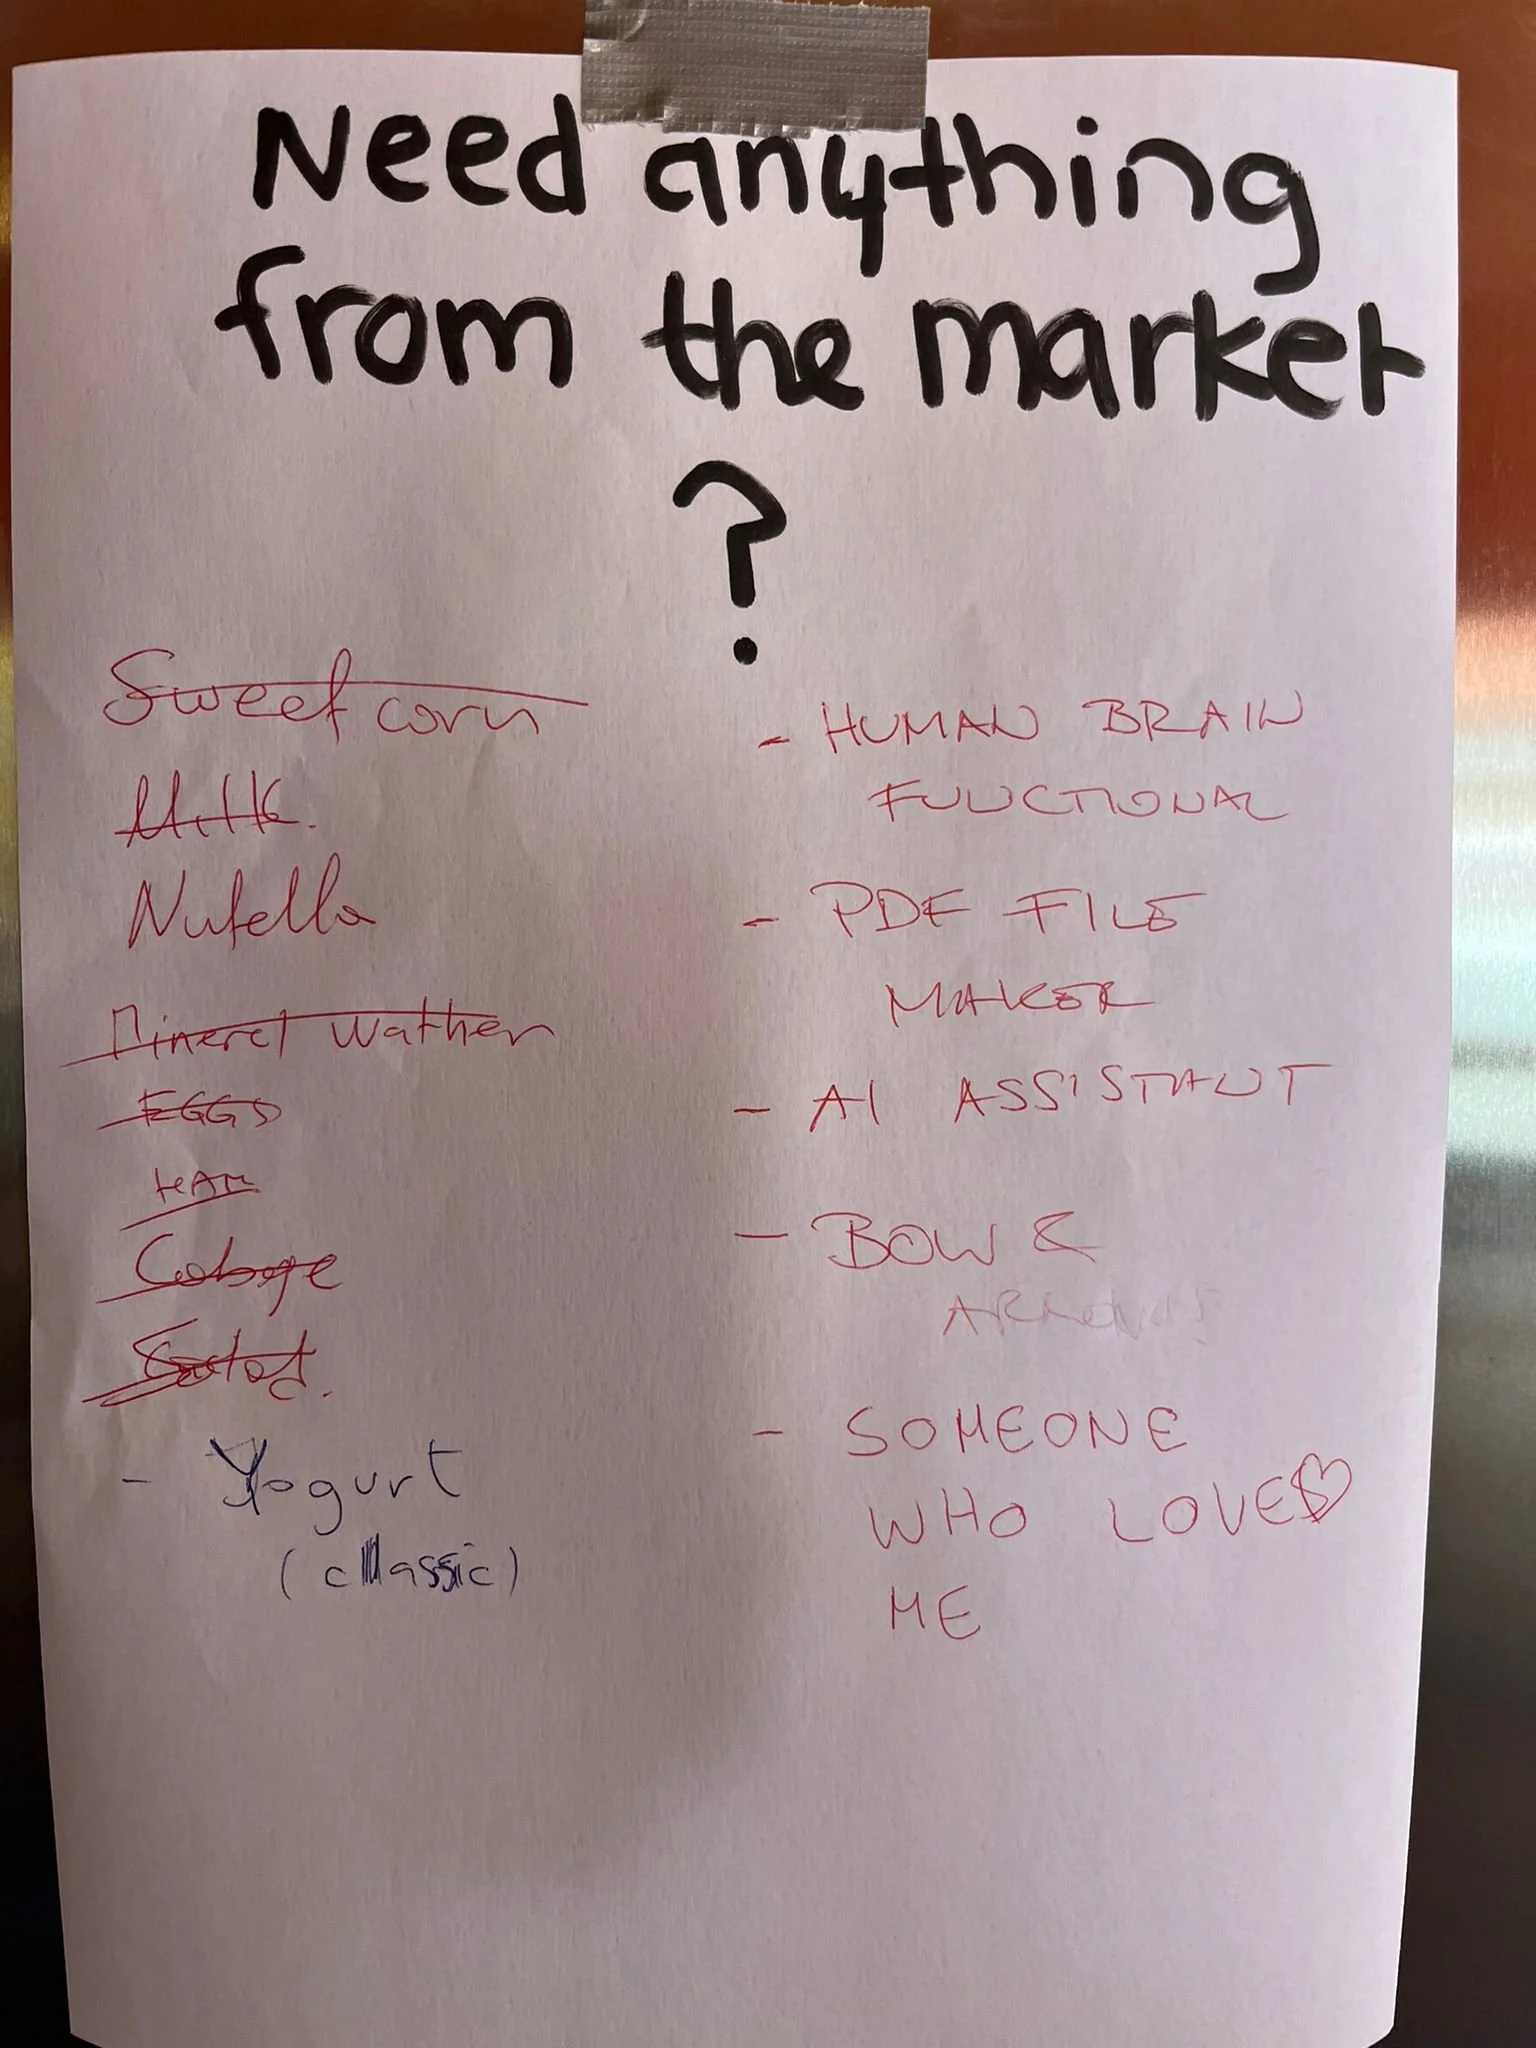 Need anything
from the market
?
Sweet corn
Milk.
Nutella
Mineral Wather
EGGS
HAM
Cabage
Salad.
- Yogurt
(classic)
- HUMAN BRAIN
FUNCTIONAL
- PDF FILE
MAKER
- AI ASSISTANT
- BOW &
ARROWS
- SOMEONE
WHO LOVES
ME